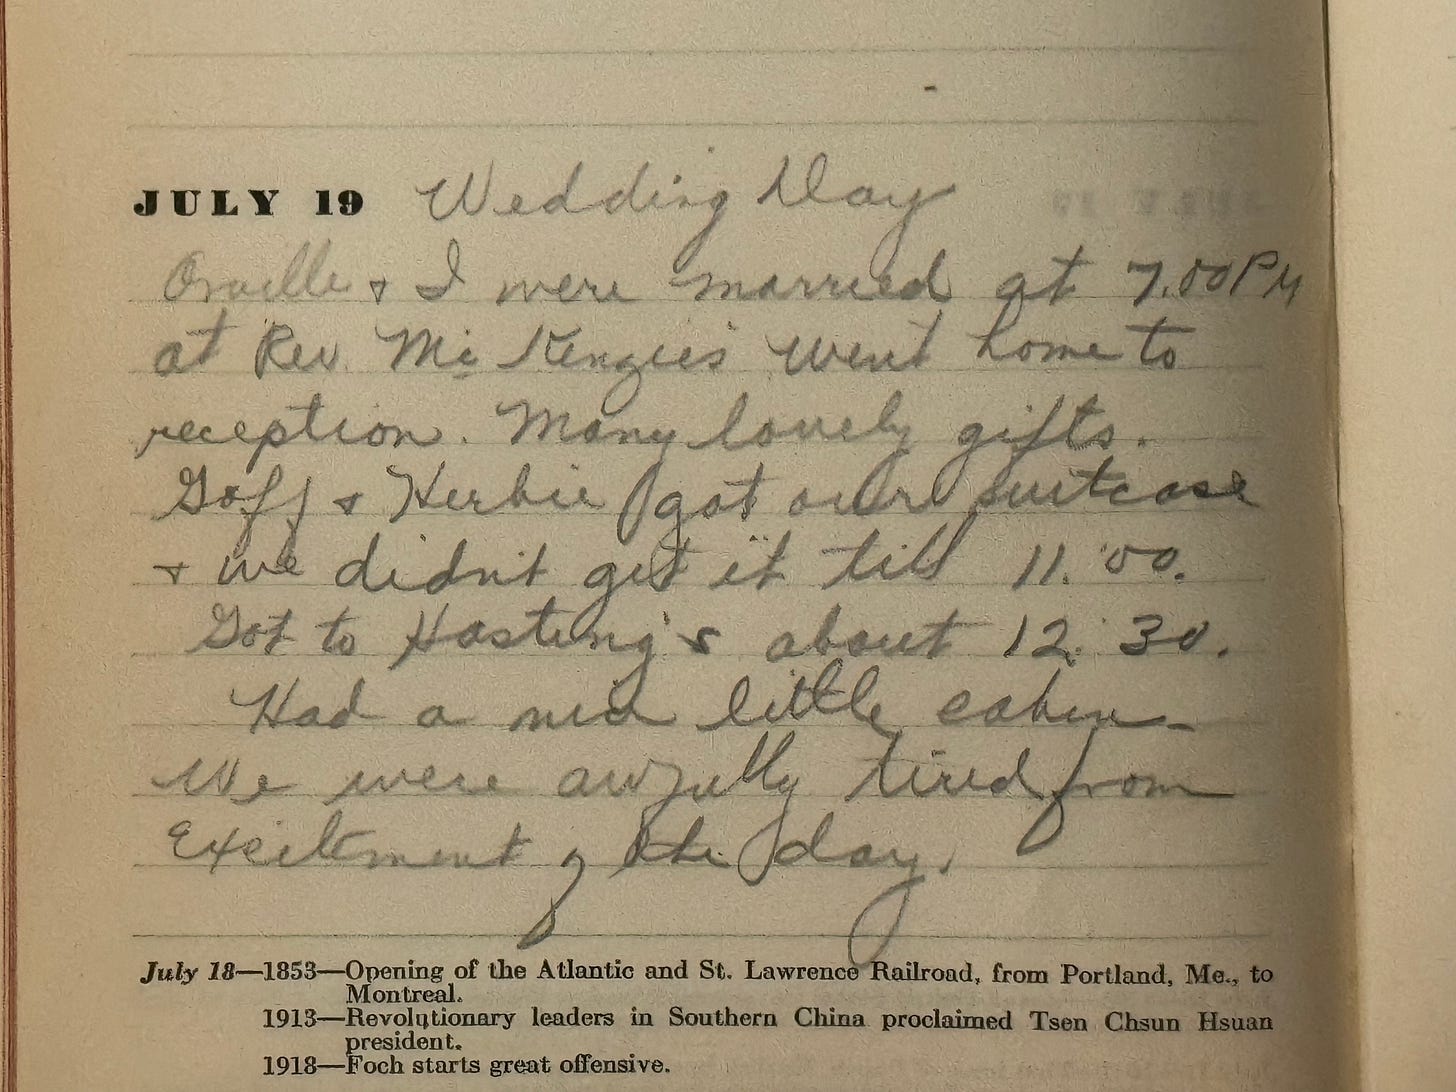 JULY 19 Wedding Day
Orville & I were married at 7.00 PM
at Rev. Mc Kenzies went home to
reception. Many lovely gifts.
Goff & Herbie got our suitcase
& we didn't get it till 11:00.
Got to Hasting's about 12:30.
Had a nice little cabin -
We were awfully tired from
Excitement of the day.
July 18—1853—Opening of the Atlantic and St. Lawrence Railroad, from Portland, Me., to
Montreal.
1913—Revolutionary leaders in Southern China proclaimed Tsen Chsun Hsuan
president.
1918—Foch starts great offensive.